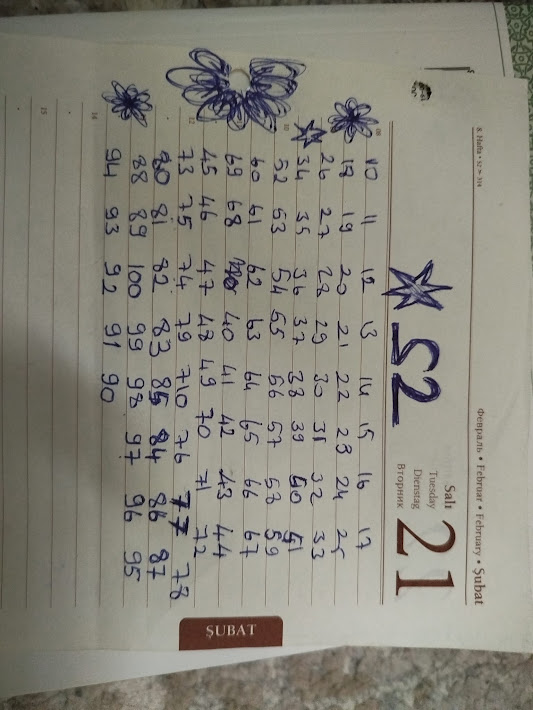 8. Hafta • 52 - 314
Февраль • Februar • February • Şubat
Salı
Tuesday
Dienstag
Вторник
21
52
08
10 11 12 13 14 15 16 17
18 19 20 21 22 23 24 25
26 27 28 29 30 31 32 33
34 35 36 37 38 39 50 51
10
52 53 54 55 56 57 58 59
60 61 62 63 64 65 66 67
69 68 40 41 42 43 44
45 46 47 48 49 70 71 72
12
73 75 74 79 710 76 77 78
80 81 82 83 85 84 86 87
88 89 100 99 98 97 96 95
94 93 92 91 90
14
15
ŞUBAT